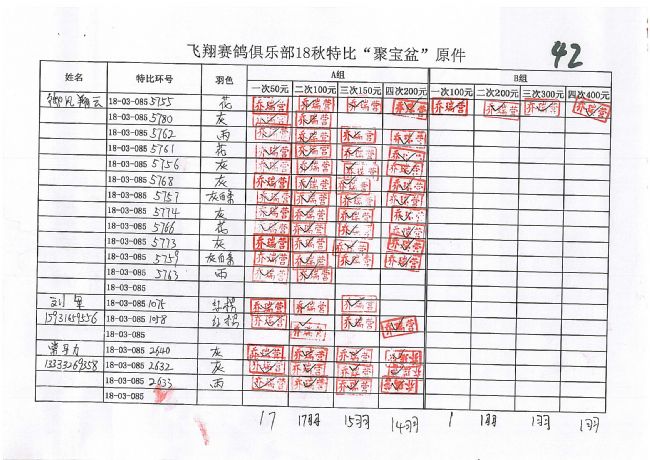 飞翔赛鸽俱乐部18秋特比“聚宝盆”原件
42
姓名 特比环号 羽色 A组 B组
一次50元 二次100元 三次150元 四次200元 一次100元 二次200元 三次300元 四次400元
翔云 18-03-085 5755 花 乔瑞营 乔瑞营 乔瑞营 乔瑞营 乔瑞营 乔瑞营 乔瑞营 乔瑞营
18-03-085 5780 灰 乔瑞营 乔瑞营
18-03-085 5762 雨 乔瑞营 乔瑞营 乔瑞营 乔瑞营
18-03-085 5761 花 乔瑞营 乔瑞营 乔瑞营 乔瑞营
18-03-085 5756 灰 乔瑞营 乔瑞营 乔瑞营 乔瑞营
18-03-085 5768 灰 乔瑞营 乔瑞营 乔瑞营 乔瑞营
18-03-085 5757 灰白条 乔瑞营 乔瑞营 乔瑞营 乔瑞营
18-03-085 5774 灰 乔瑞营 乔瑞营 乔瑞营 乔瑞营
18-03-085 5766 花 乔瑞营 乔瑞营 乔瑞营 乔瑞营
18-03-085 5773 灰 乔瑞营 乔瑞营 乔瑞营 乔瑞营
18-03-085 5759 灰白条 乔瑞营 乔瑞营 乔瑞营 乔瑞营
18-03-085 5763 雨 乔瑞营 乔瑞营
18-03-085
刘 18-03-085 1075 乔瑞营 乔瑞营 乔瑞营
18-03-085 1058 乔瑞营 乔瑞营 乔瑞营 乔瑞营
18-03-085
常 18-03-085 2640 灰 乔瑞营 乔瑞营 乔瑞营 乔瑞营
13333269358 18-03-085 2632 灰 乔瑞营 乔瑞营 乔瑞营 乔瑞营
18-03-085 2633 雨 乔瑞营 乔瑞营 乔瑞营 乔瑞营
18-03-085
17 17羽 15羽 14羽 1 1羽 1羽 1羽